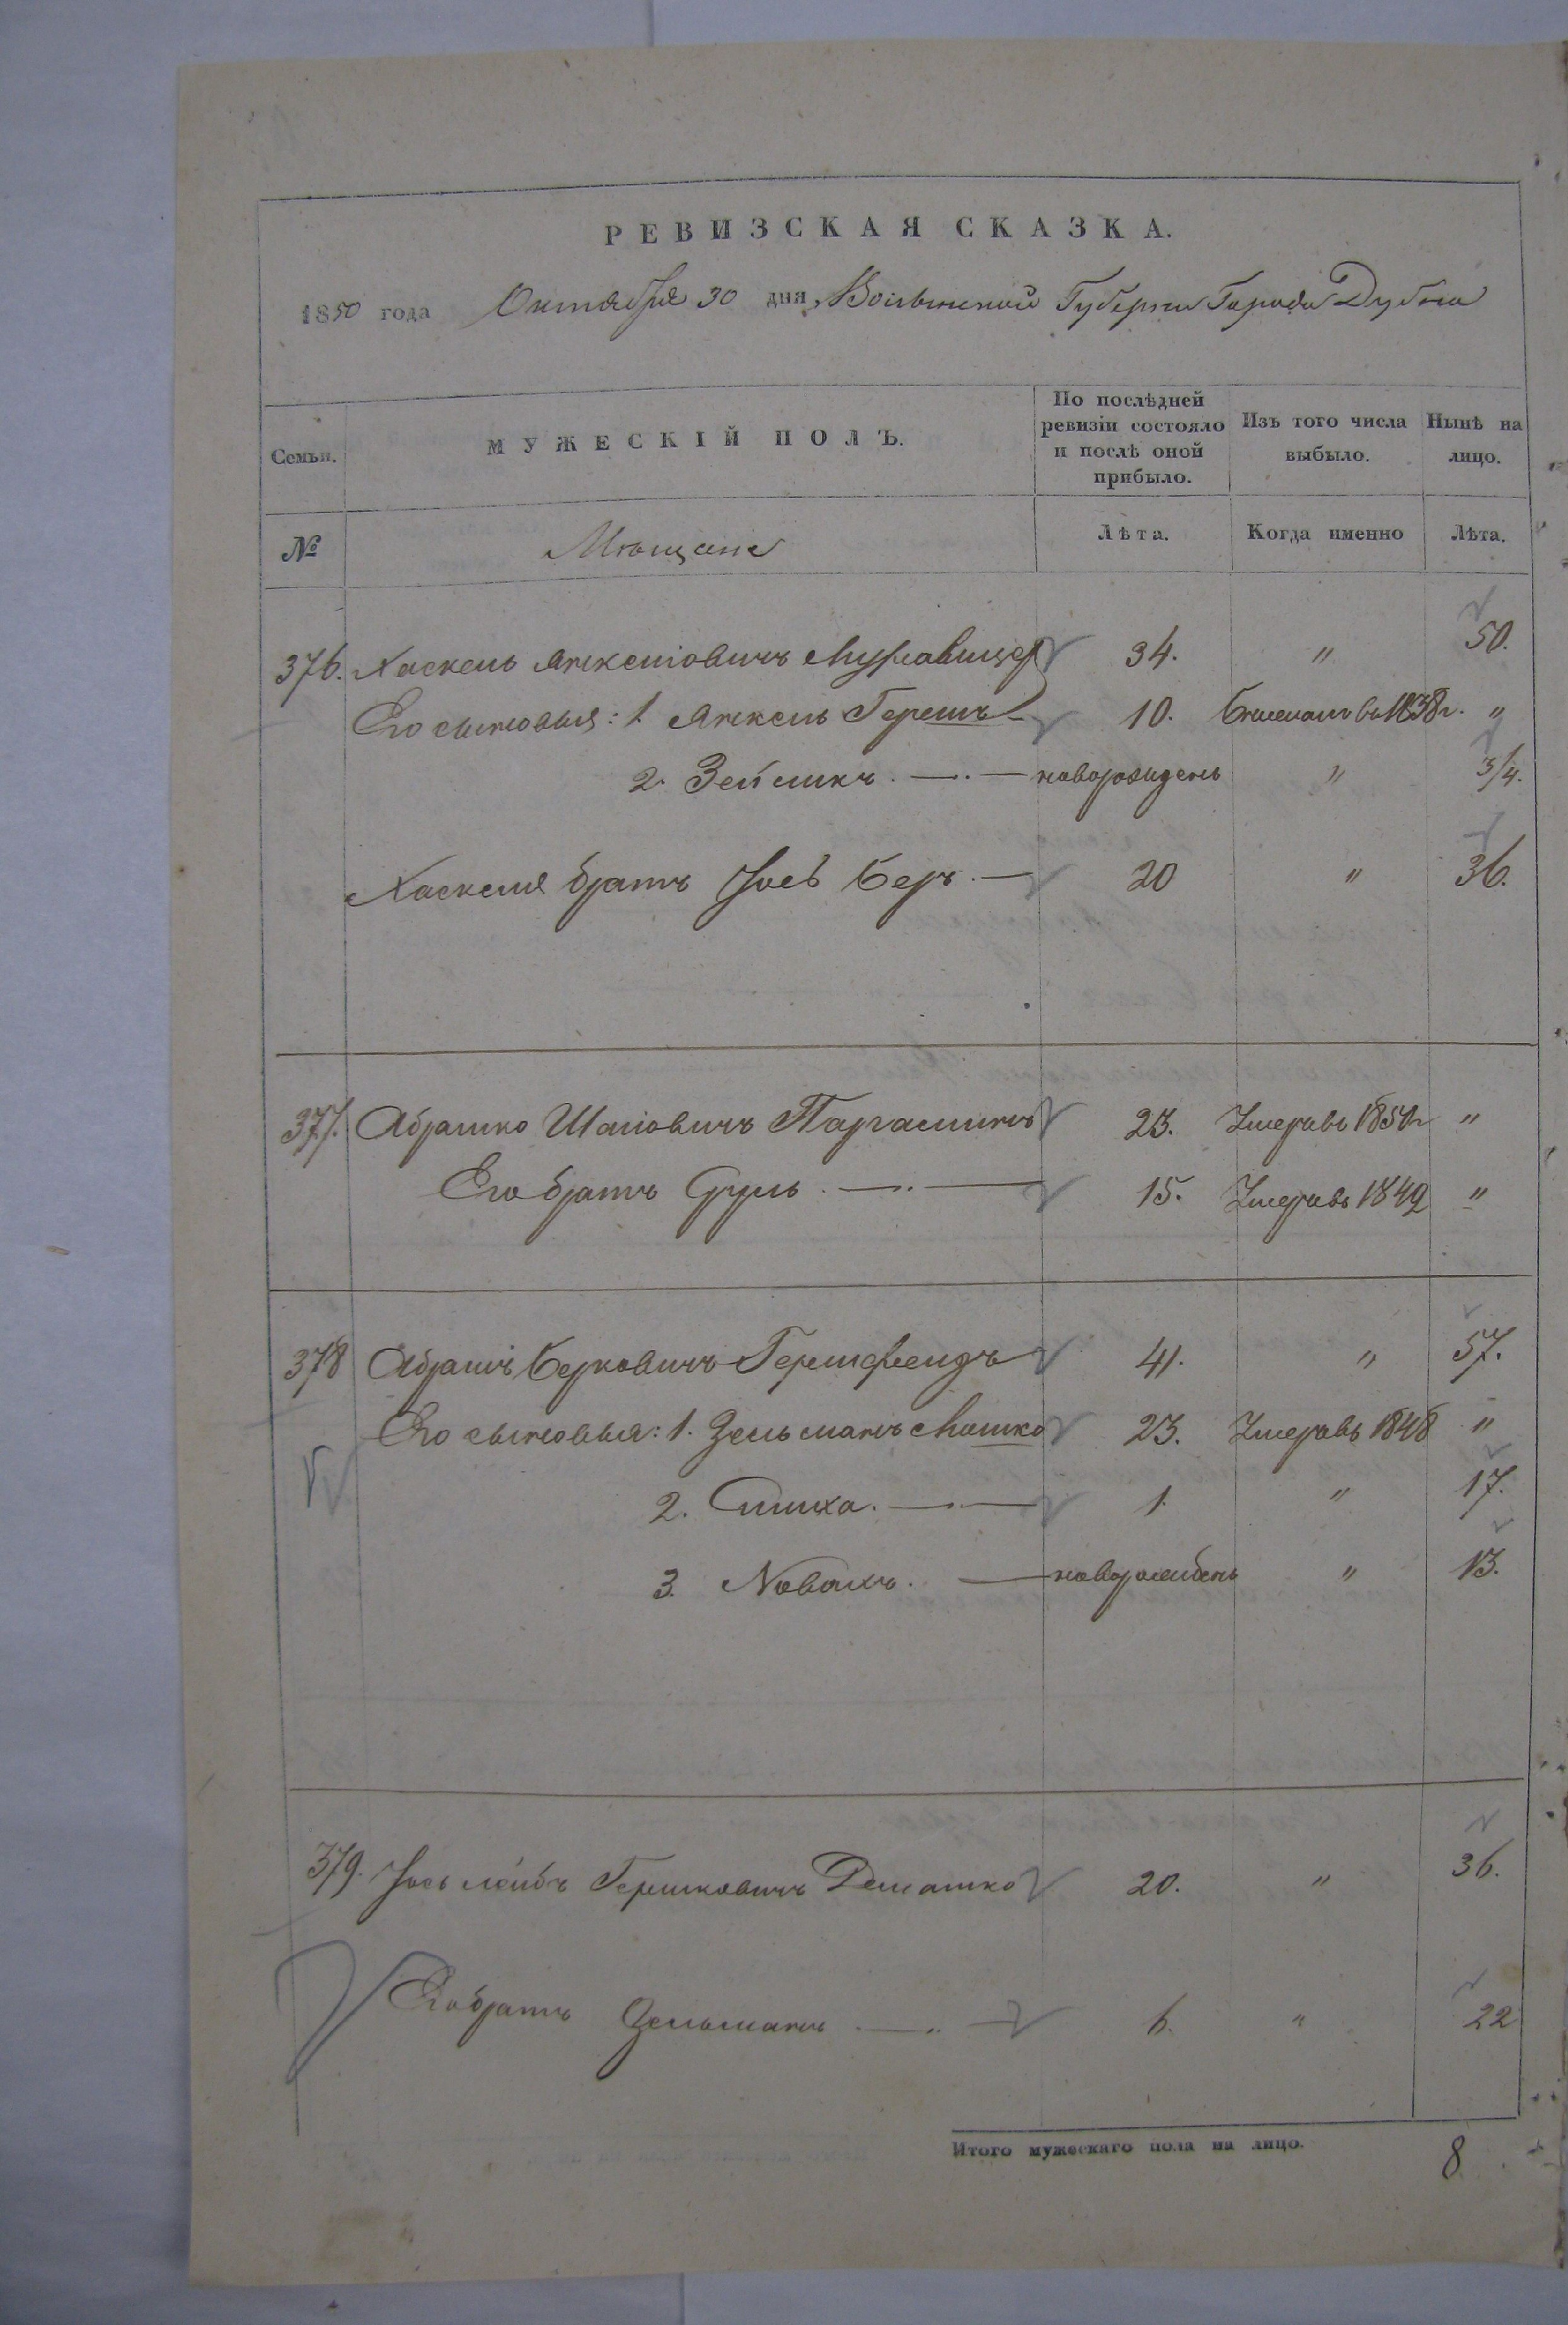 РЕВИЗСКАЯ СКАЗКА.
1850 года Октября 30 дня Волынской Губернии Города Дубна
Семьи.
МУЖЕСКІЙ ПОЛЪ.
По послѣдней ревизіи состояло и послѣ оной прибыло.
Изъ того числа выбыло.
Нынѣ на лицо.
№
Мѣщане
Лѣта.
Когда именно
Лѣта.
376. Хаскель Янкелiовичъ Муравицер 34. " 50.
Его сыновья: 1. Янкель Гершъ 10. въ 1838г. "
2. Зейликъ новорожденъ " 3/4.
Хаскеля братъ Іось Беръ 20 " 36.
377. Абрашко Шаiовичъ 23. Умеръ въ 1850г "
Его братъ Сруль 15. Умеръ въ 1849 "
378 Абрамъ Берковичъ Гершфельдъ 41. " 57.
Его сыновья: 1. Зельманъ Мошко 23. Умеръ въ 1848 "
2. Симха 1. " 17.
3. Новахъ новорожденъ " 13.
379. Іось Лейбъ Гершковичъ 20. " 36.
Его братъ Зельманъ 6. " 22
Итого мужескаго пола на лицо. 8